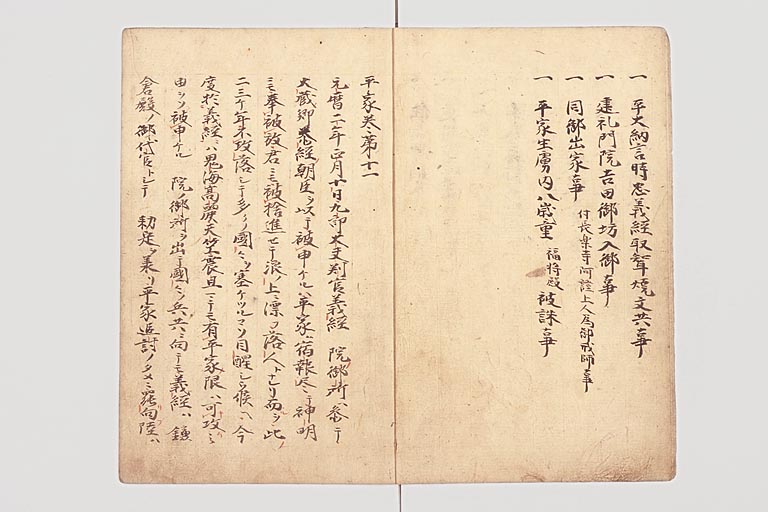 一 平大納言時忠義経取聟焼文共事
一 建礼門院吉田御坊入御事
一 同御出家事 付長楽寺阿証上人為御戒師事
一 平家生虜内八歳童 福将殿 被誅事
平家巻第十一
元暦二年正月十日九郎大夫判官義経 院御所ヘ参テ
大蔵卿泰経朝臣ヲ以テ被申ケルハ平家ハ宿報尽テ神明
ニモ奉被放君ニモ被捨進セテ浪ノ上ニ漂フ落人トナレリ而ヲ此
二三ケ年不攻落シテ多クノ國々ヲ塞ケツルコソ目醒シク候ヘ今
度於義経ハ鬼海高麗天竺震旦マテモ有平家限ハ可攻之
由ヲソ被申ケル 院ノ御所ヲ出テ國々ノ兵共ニ向テモ義経ハ鎌
倉殿ノ御代官トシテ 勅定ヲ承リ平家追討ノタメニ罷向陸ハ